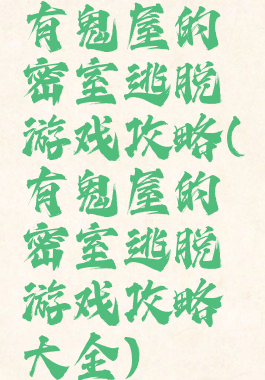 有鬼屋的
密室逃脱
游戏攻略(
有鬼屋的
密室逃脱
游戏攻略
大全)